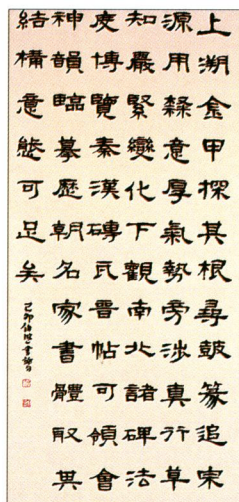 上溯金甲探其根尋鼓篆追宋
源用隸意厚氣勢旁涉真行草
知嚴緊變化下觀南北諸碑法
度博覽秦漢磚瓦晉帖可領會
神韻臨摹歷朝名家書體取其
結構意態可足矣
己卯